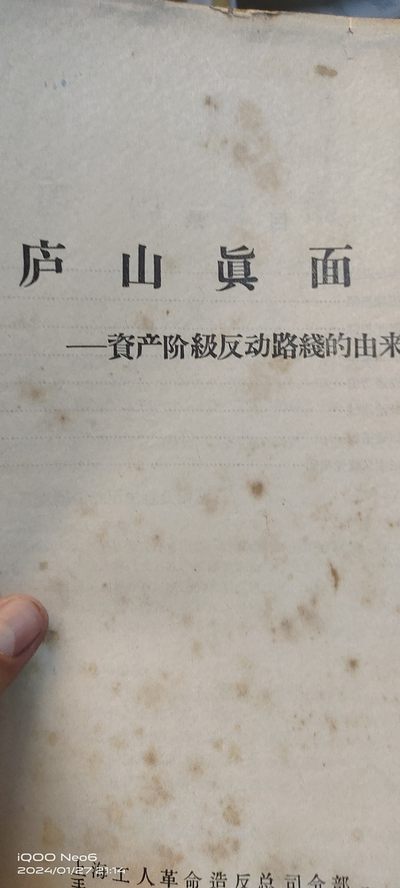 庐山眞面
——資产阶級反动路綫的由来
上海工人革命造反总司令部
iQOO Neo6
2024/01/27 21:14